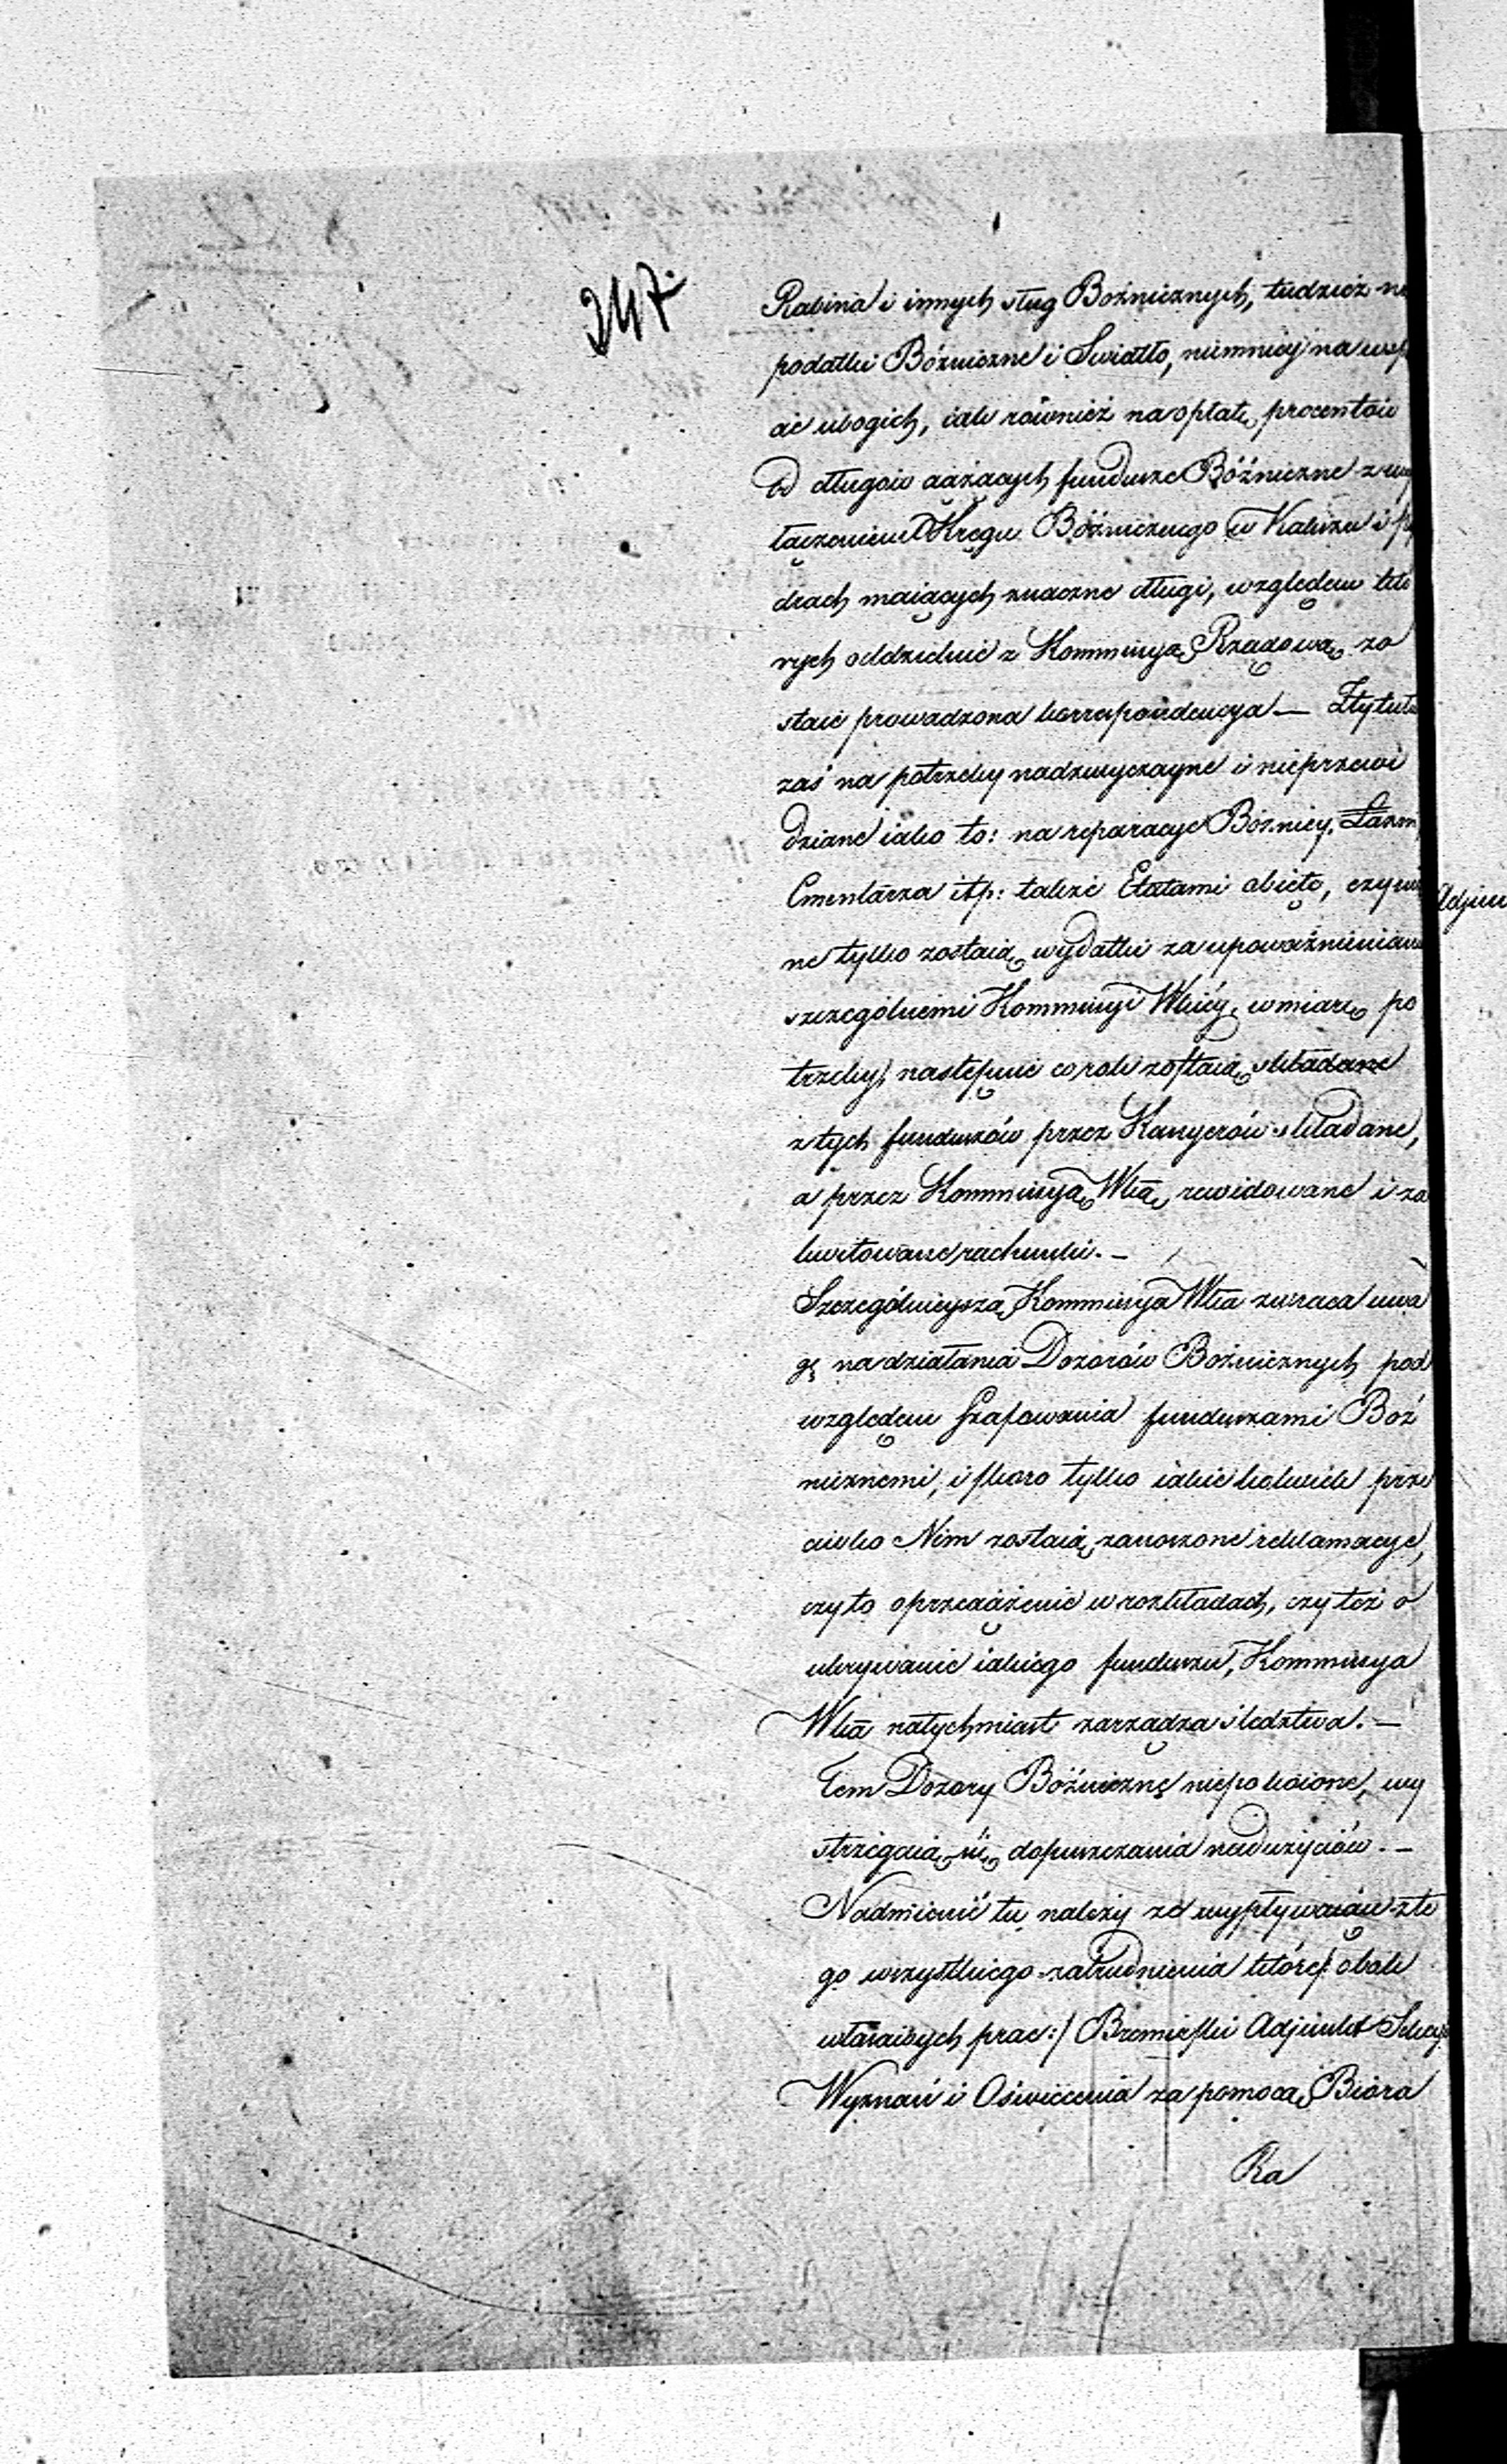 247.
Rabina i innych sług Boźnicznych, tudzież na
podatki Bóźniczne i Swiatło, niemniej na wsp
ać ubogich, iak również na opłatę procentów
Od długów ciążących fundusze Bóźniczne z wy
łączeniem Okręgu Bóźnicznego w Kaliszu i
drach maiących znaczne długi, względem któ
rych oddzielnie z Kommissyą Rządową zo
staie prowadzona korrespondencya — Z tytułu
zaś na potrzeby nadzwyczayne i nieprzewi
dziane iako to: na reparacye Bóżnicy, Łazni,
Cmentarza itp: także Etatami obięte, czynio
ne tylko zostaią wydatki za upoważnieniami
szczególnemi Kommissyi Wkiéy, w miarę po
trzeby, następnie co rok zostaią składane
z tych funduszów przez Kassyerów składane,
a przez Kommissyą Wką rewidowane i za
kwitowane rachunki. —
Szczególnieyszą Kommissya Wka zwraca uwa
gę na działania Dozorów Boźnicznych pod
względem szafowania funduszami Boź
nicznemi, i skoro tylko iakie kolwiek prze
ciwko Nim zostaią zanoszone reklamacye,
czy to o przeciążenie w rozkładach, czy też o
ukrywanie iakiego funduszu, Kommissya
Wka natychmiast zarządza śledztwa. —
Tem Dozory Bóźniczne niepokoione, wy
strzegaią się dopuszczania nadużyciów. —
Nadmienić tu należy że wypływaiące z te
go wszystkiego zatrudnienia które/: obok
właściwych prac:/ Bromirski Adjunkt Sekcyi
Wyznań i Oświecenia za pomocą Bióra
Ra
Adjun